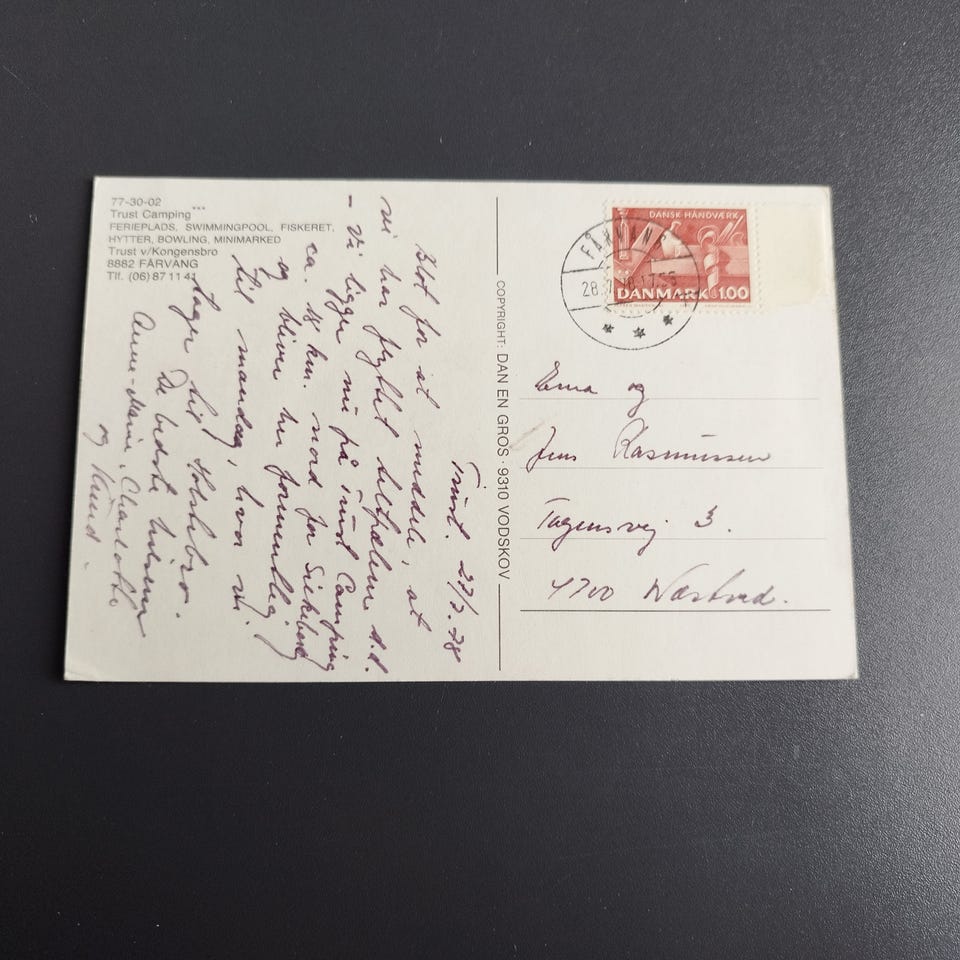 77-30-02
Trust Camping
FERIEPLADS, SWIMMINGPOOL, FISKERET,
HYTTER, BOWLING, MINIMARKED
Trust v/Kongensbro
8882 FÅRVANG
Tlf. (06) 87 11 41
Trust. 27/7.78
Blot for at meddele, at
vi har flyttet teltpælene d.d.
- Vi ligger nu på Trust Camping
ca. 18 km. nord for Silkeborg
og bliver her formentlig
til mandag, hvor vi
tager til Holstebro.
De bedste hilsener
Anne-Marie, Charlotte
og Knud.
COPYRIGHT: DAN EN GROS · 9310 VODSKOV
FÅRVANG
28.7.78 17.56
DANSK HÅNDVÆRK
DANMARK 1.00
Erna og
Jens Rasmussen
Tagensvej 3.
4700 Næstved.